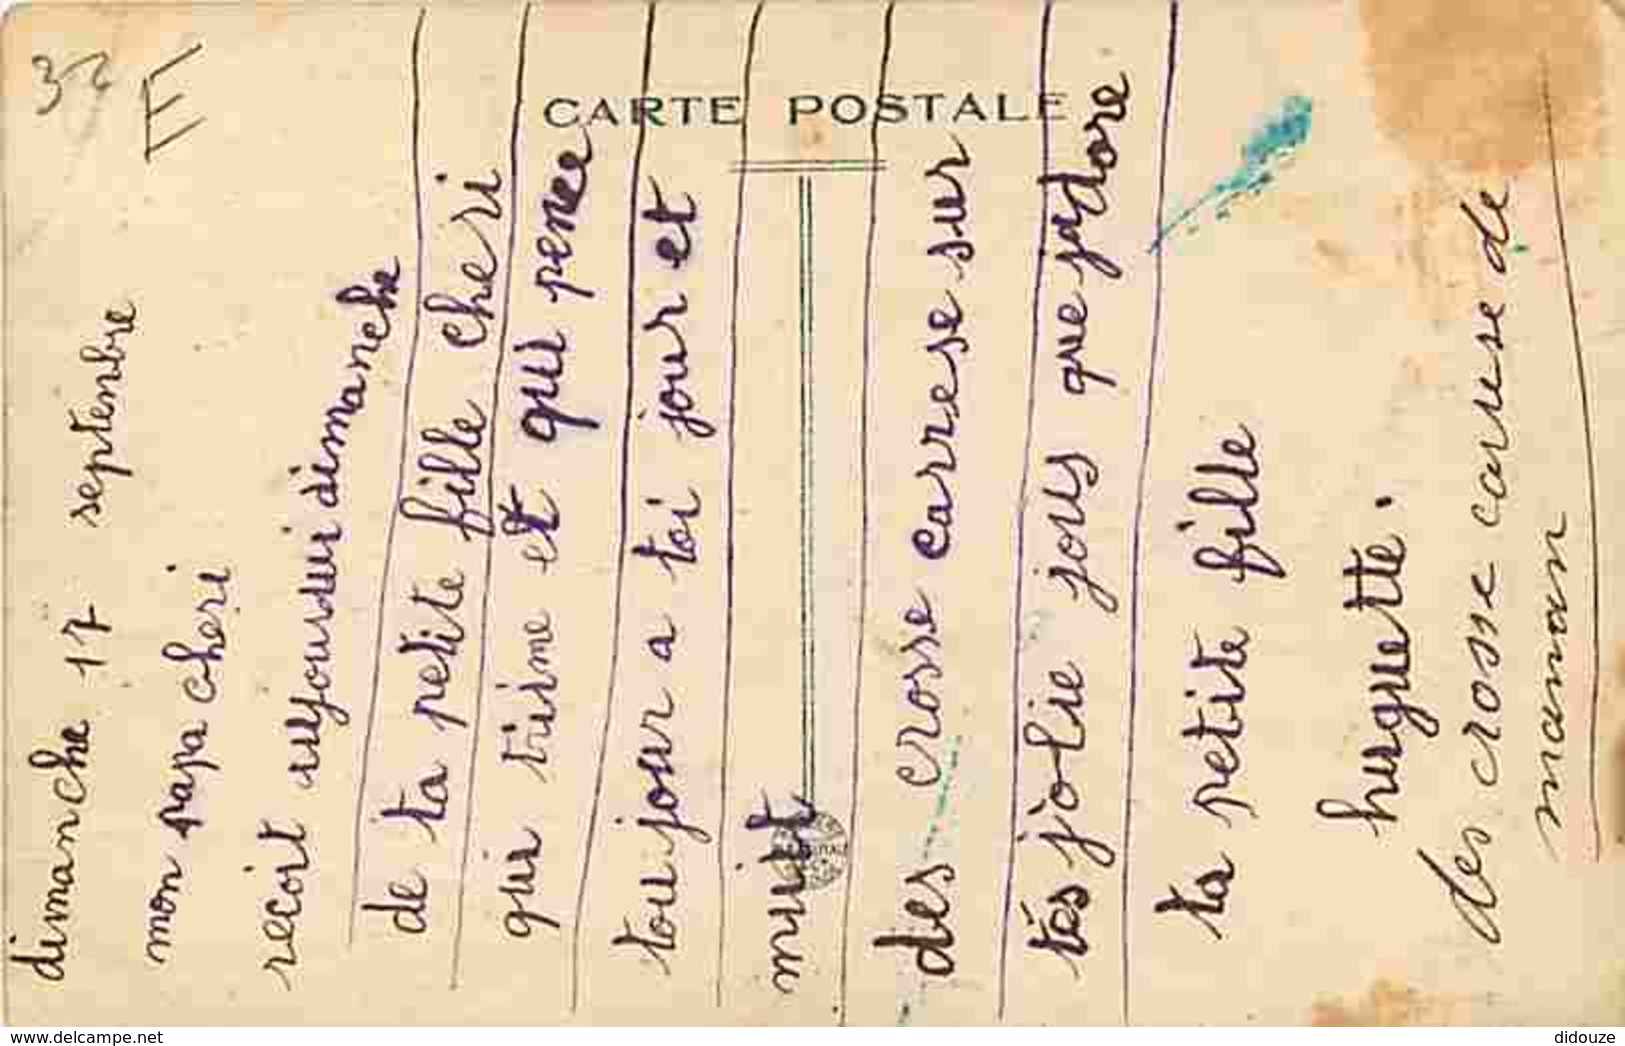 dimanche 17 septenbre
mon papa cheri
recoit aujourdui dimanche
de ta petite fille cheri
qui t'aime et qui pence
toujour a toi jour et
nuit
des crosse carrese sur
tés jolie jous que jadore
ta petite fille
huguette.
des crosse carese de
maman
CARTE POSTALE
32
E
delcampe.net
didouze